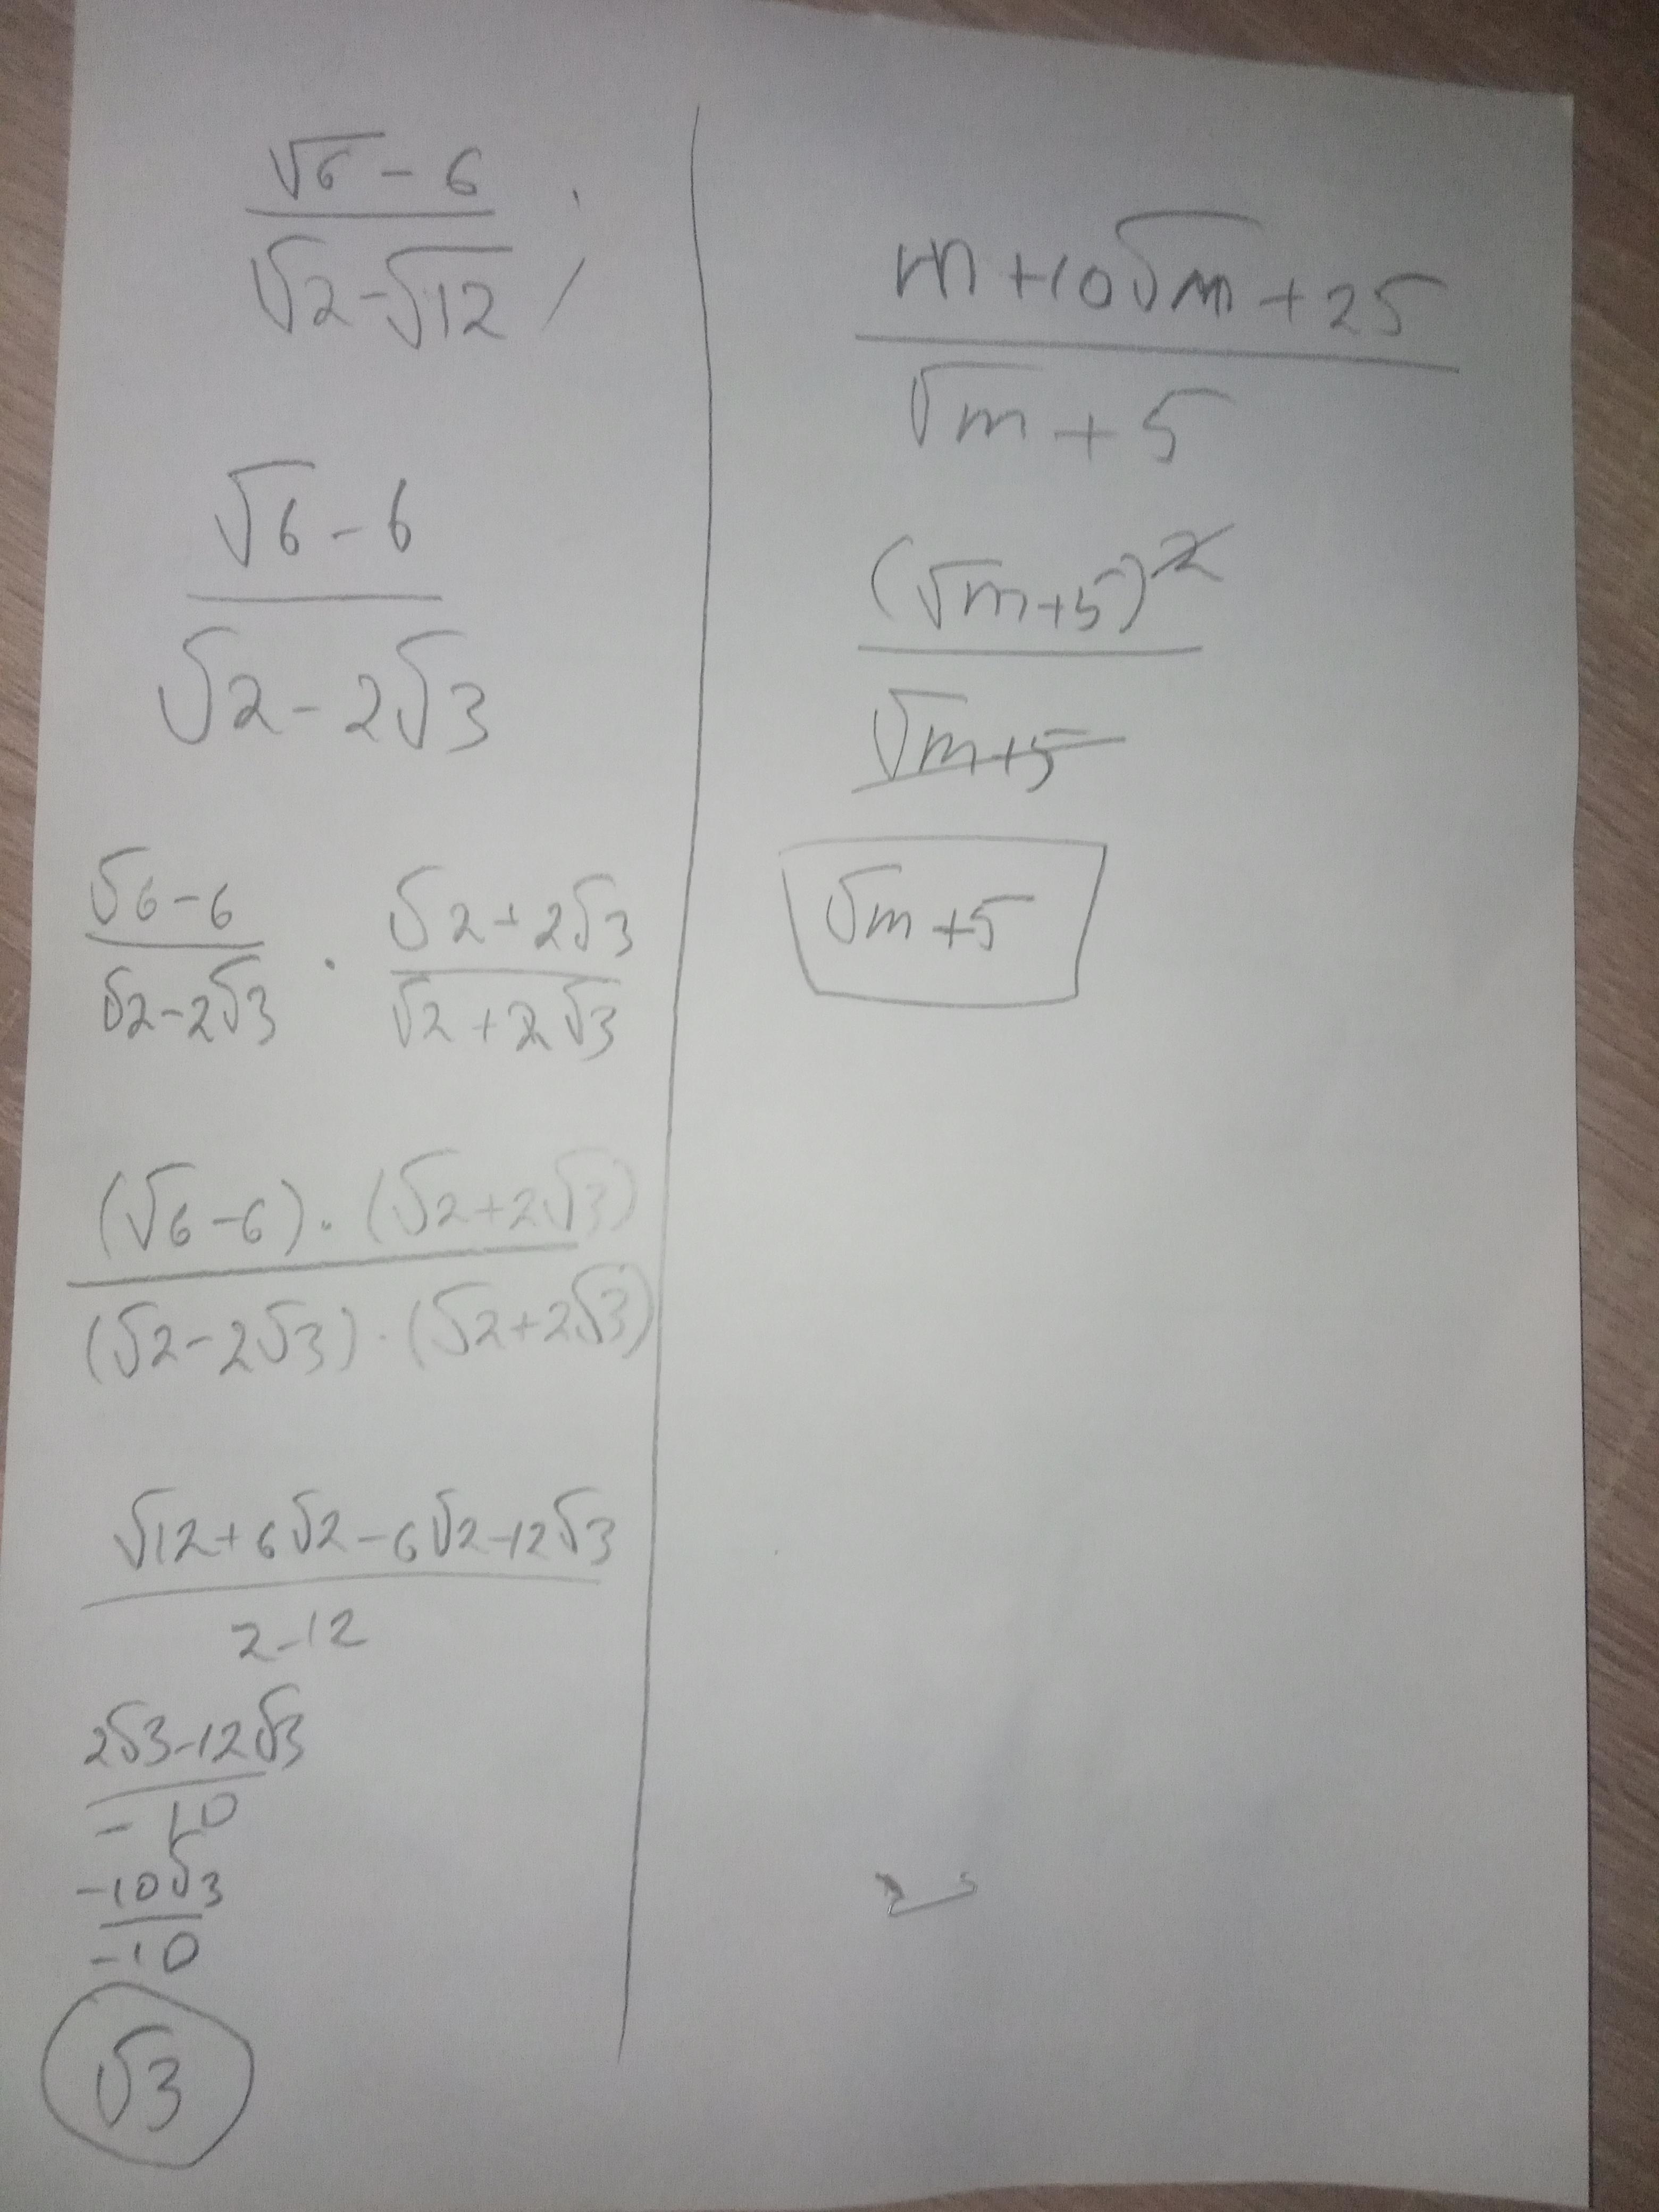 √6 - 6
√2 - √12
√6 - 6
√2 - 2√3
√6 - 6 · √2 + 2√3
√2 - 2√3 √2 + 2√3
(√6 - 6) · (√2 + 2√3)
(√2 - 2√3) · (√2 + 2√3)
√12 + 6√2 - 6√2 - 12√3
2 - 12
2√3 - 12√3
- 10
-10√3
-10
√3
m + 10√m + 25
√m + 5
(√m + 5)²
√m + 5
√m + 5